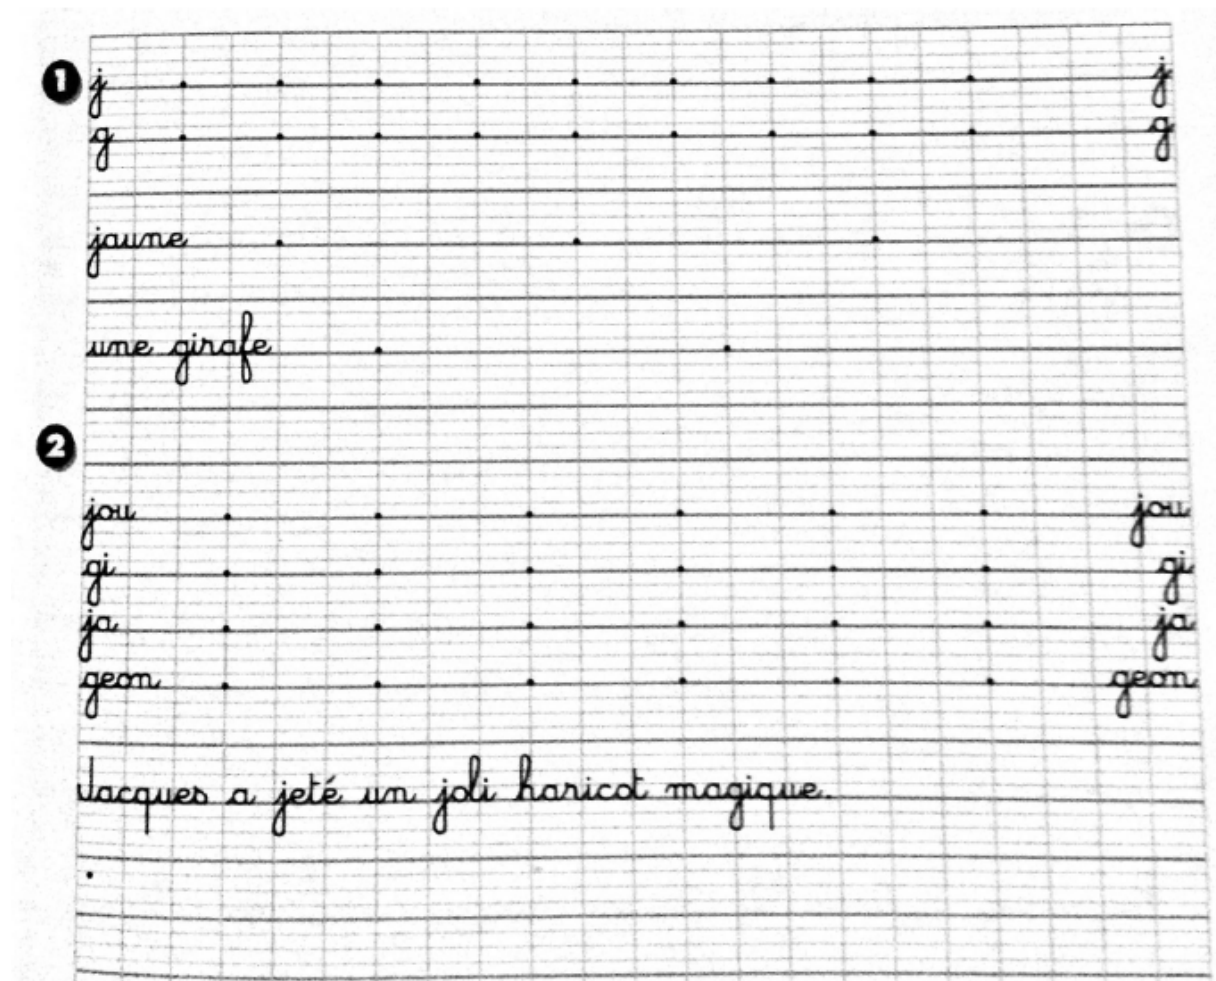 1 j j
g g
jaune
une girafe
2
jou jou
gi gi
ja ja
geon geon
Jacques a jeté un joli haricot magique.